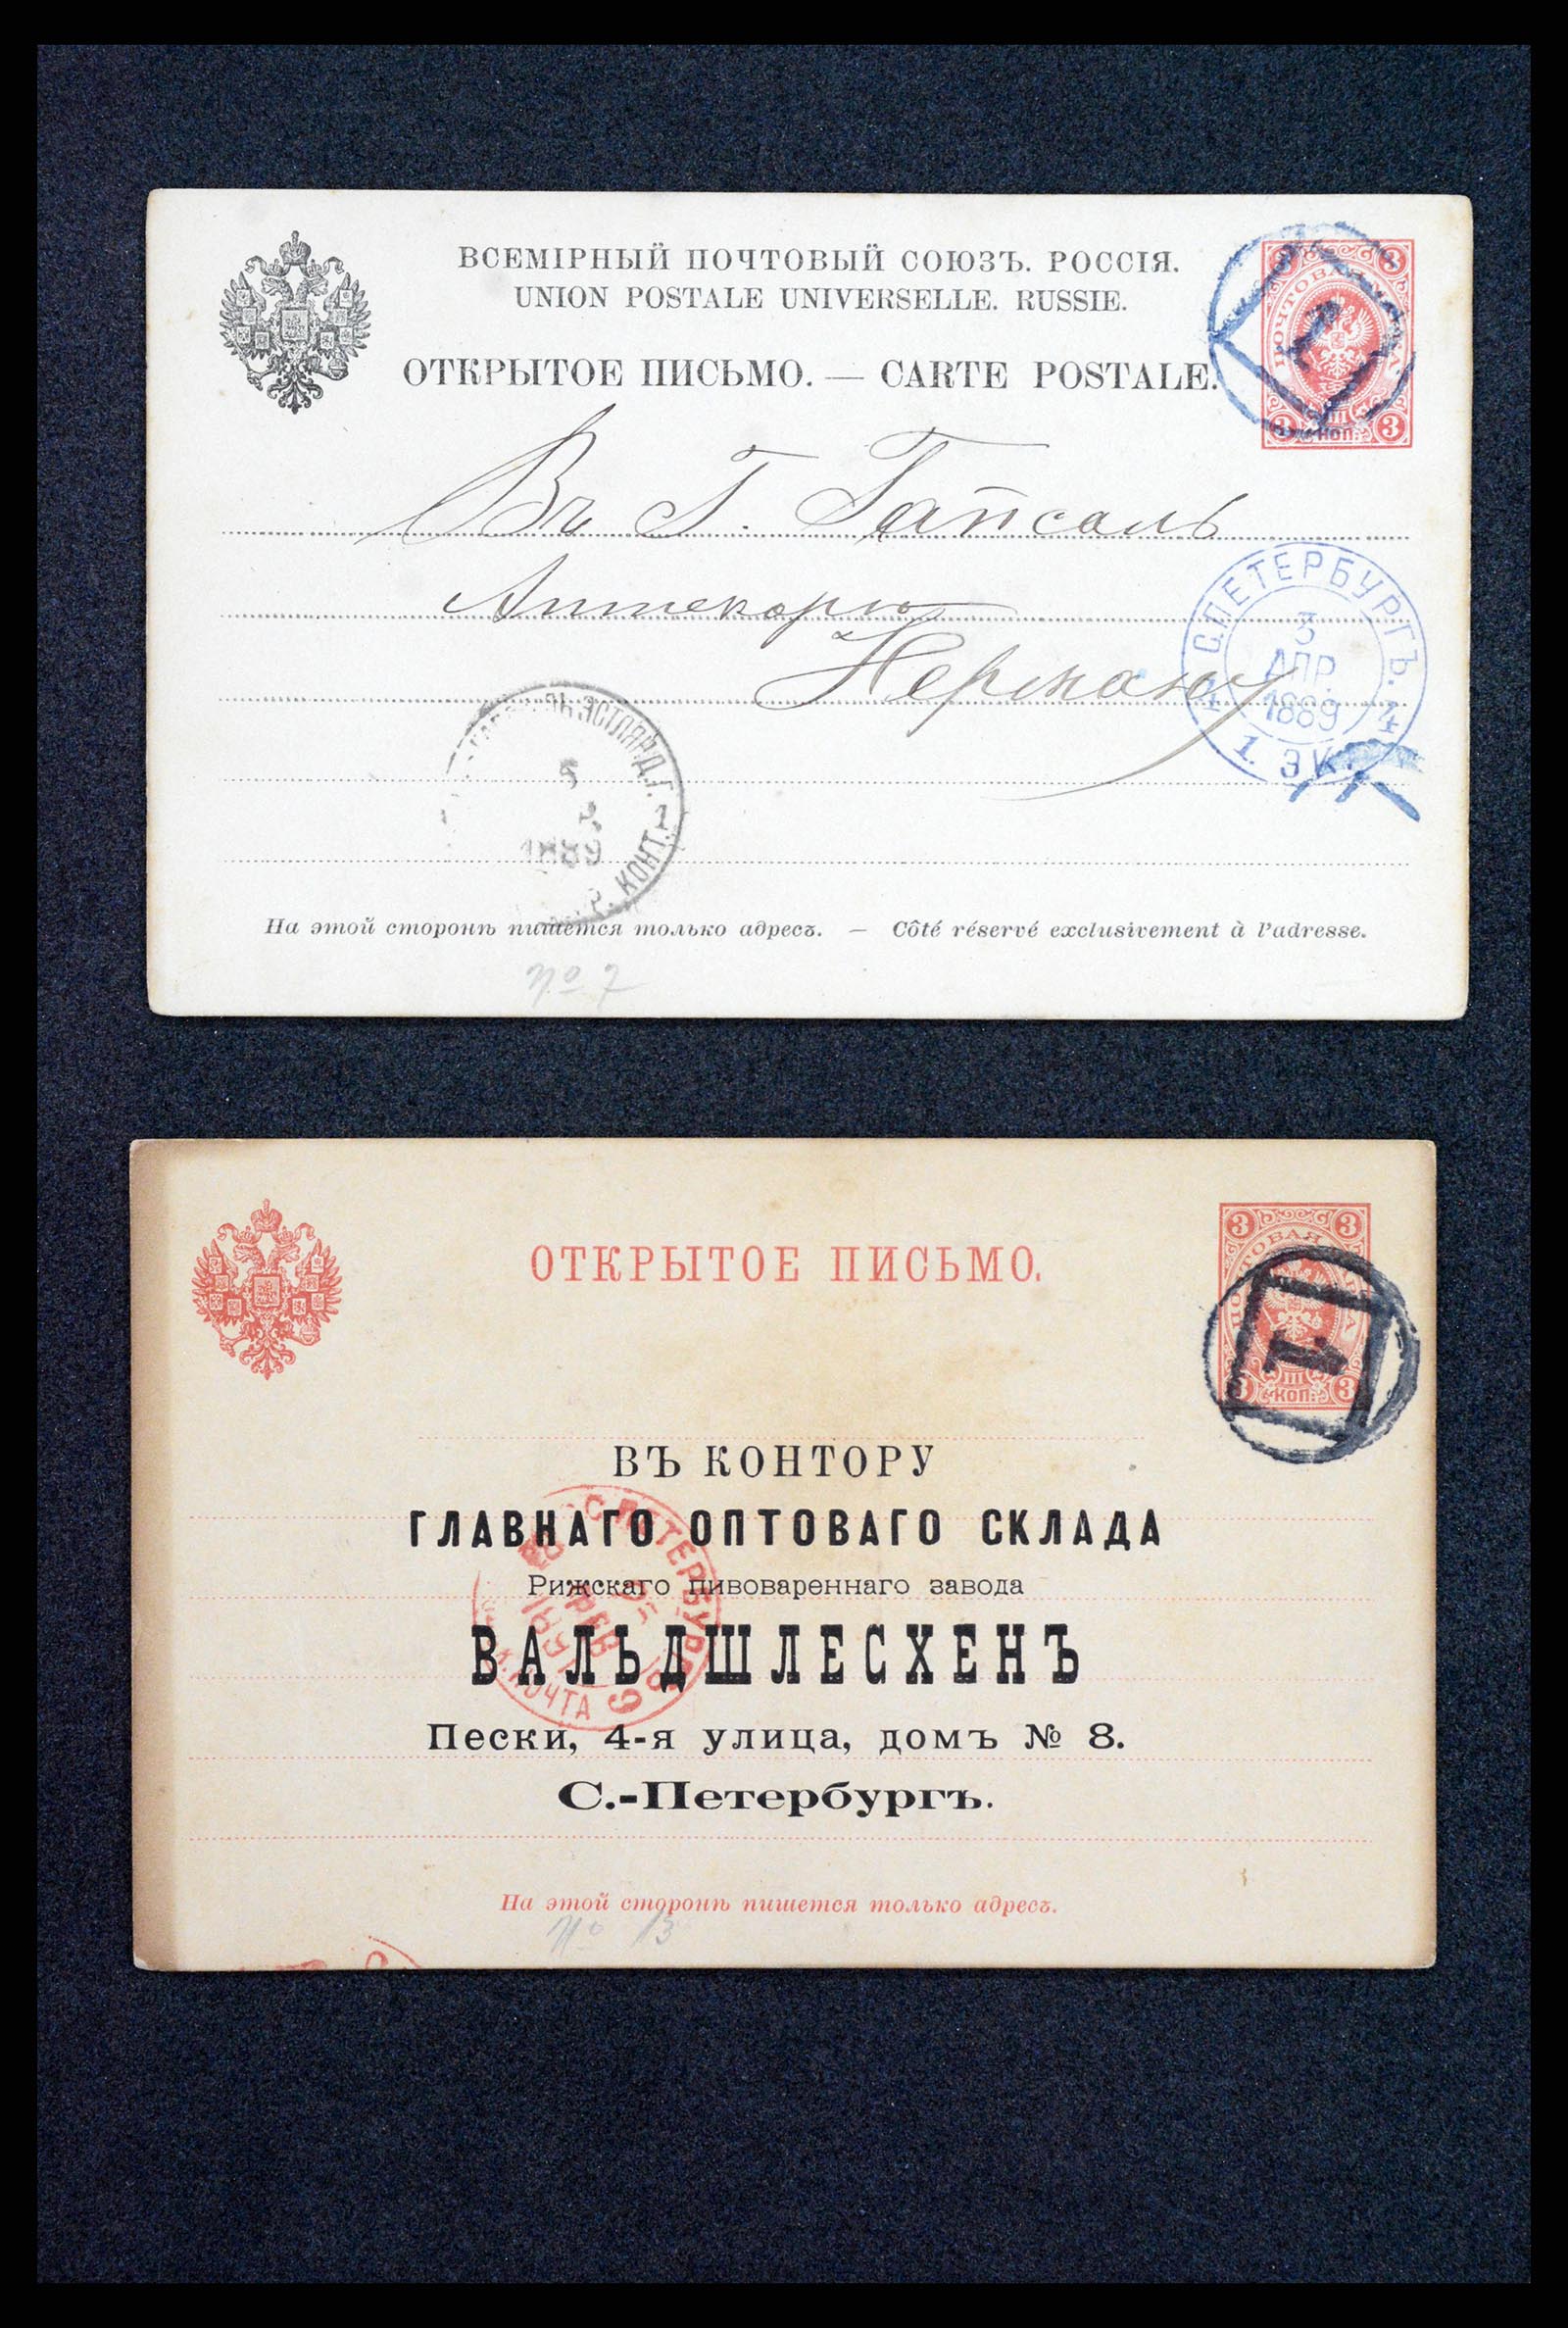 ВСЕМІРНЫЙ ПОЧТОВЫЙ СОЮЗЪ. РОССІЯ.
UNION POSTALE UNIVERSELLE. RUSSIE.
ОТКРЫТОЕ ПИСЬМО. — CARTE POSTALE.
3 3
ПОЧТОВАЯ МАРКА
1
III
3 КОП. 3
Въ Г. Гапсаль
Аптекарю
С.ПЕТЕРБУРГЪ.
3
АПР.
1889
4 4
1. ЭК.
ЭСТЛЯНД. Г.
5
1889
1
КОНТ.
На этой сторонѣ пишется только адресъ. — Côté réservé exclusivement à l'adresse.
No 7
ОТКРЫТОЕ ПИСЬМО.
3 3
ПОЧТОВАЯ МАРКА
1
III
3 КОП. 3
ВЪ КОНТОРУ
ГЛАВНАГО ОПТОВАГО СКЛАДА
Рижскаго пивовареннаго завода
ВАЛЬДШЛЕСХЕНЪ
Пески, 4-я улица, домъ № 8.
С.-Петербургъ.
С.ПЕТЕРБУРГЪ
ФЕВ
ПОЧТА 9
На этой сторонѣ пишется только адресъ.
No 13